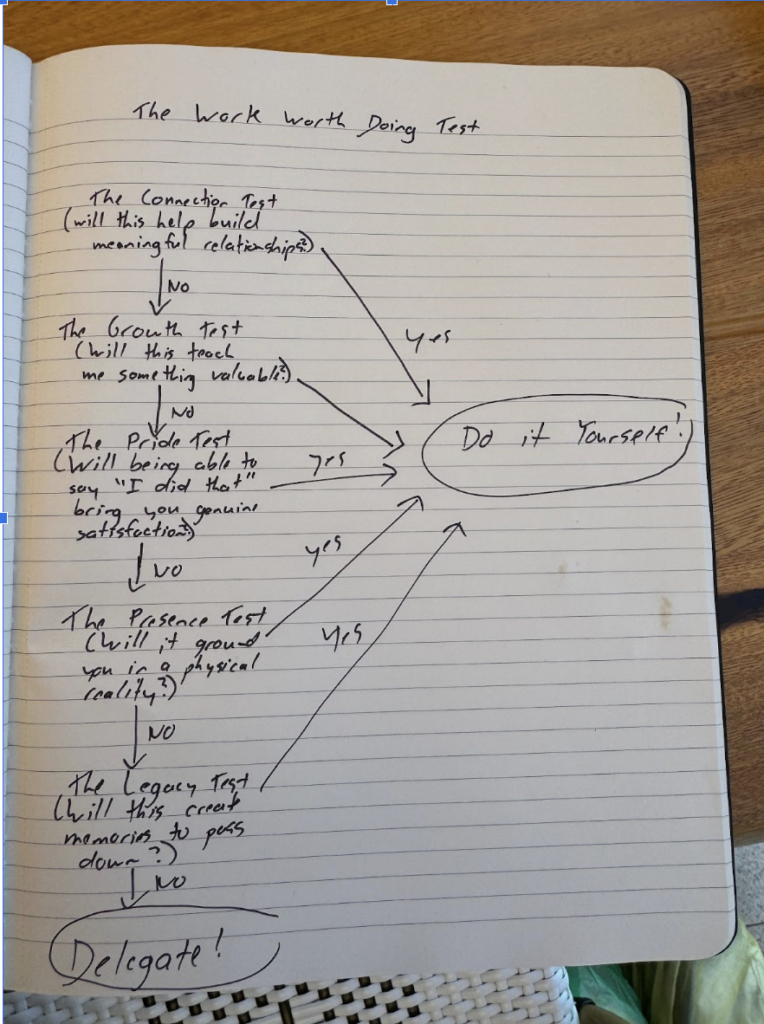 The Work Worth Doing Test
The Connection Test
(will this help build
meaningful relationships?)
Yes
No
The Growth Test
(Will this teach
me something valuable?)
No
The Pride Test
(Will being able to
say "I did that"
bring you genuine
satisfaction?)
yes
Do it Yourself!
No
yes
The Presence Test
(Will it ground
you in a physical
reality?)
yes
No
The Legacy Test
(Will this create
memories to pass
down?)
No
Delegate!